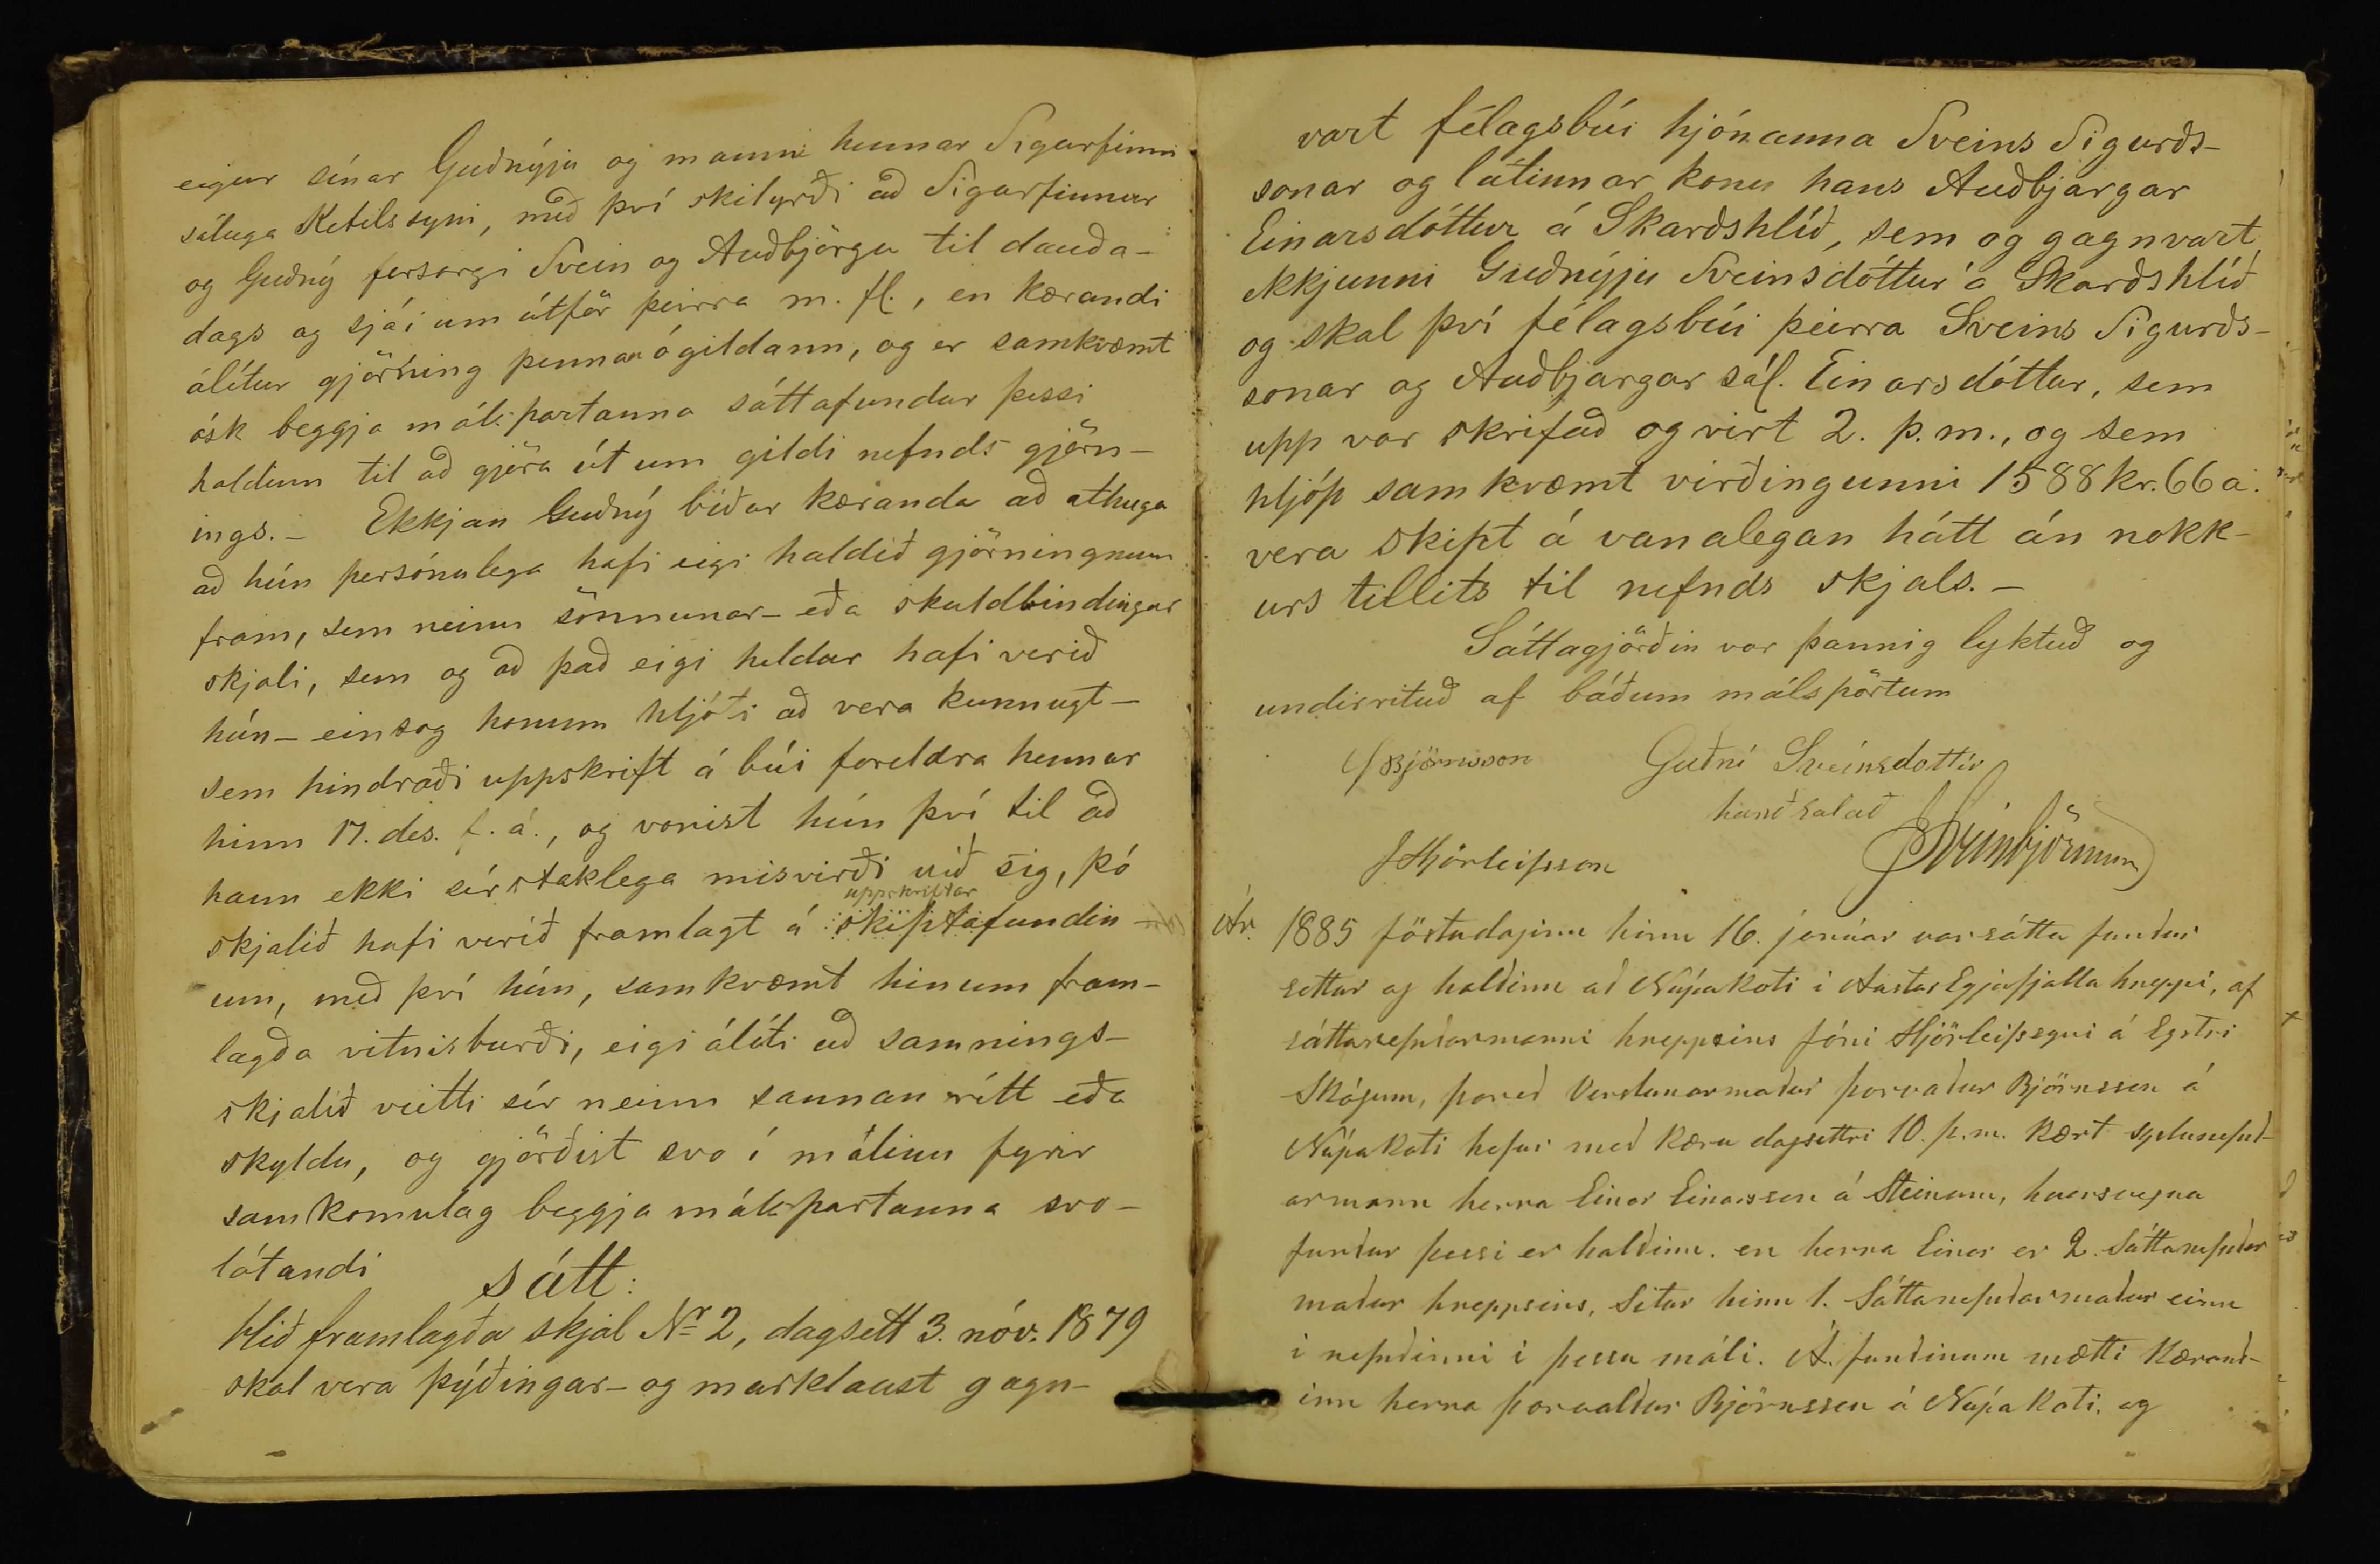 eigur sínar Guðnýju og manni hennar Sigurfinni
sáluga Ketilssyni, með því skilyrði að Sigurfinnur
og Guðný forsorgi Svein og Auðbjörgu til dauða-
dags og sjái um útför þeirra m. fl., en kærandi
álítur gjörning þennan ógildann, og er samkvæmt
ósk beggja málspartanna sáttafundur þessi
haldinn til að gjöra út um gildi nefnds gjörn-
ings. - Ekkjan Guðný biður kæranda að athuga
að hún persónulega hafi eigi haldið gjörningnum
fram, sem neinu sönnunar- eða skuldbindingar
skjali, sem og að það eigi heldur hafi verið
hún - einsog honum hljóti að vera kunnugt -
sem hindraði uppskrift á búi foreldra hennar
hinn 17. des. f. á., og vonist hún því til að
hann ekki sérstaklega misvirði við sig, þó
uppskriftar
skjalið hafi verið framlagt á skiptafundin-
um, með því hún, samkvæmt hinum fram-
lagða vitnisburði, eigi áliti að samnings-
skjalið veitti sér neinn sannan rétt eða
skyldu, og gjörðist svo í málinu fyrir
samkomulag beggja málspartanna svo-
látandi
sátt:
Hið framlagða skjal Nr 2, dagsett 3. nóv. 1879
skal vera þýðingar- og marklaust gagn-
vart félagsbúi hjónanna Sveins Sigurðs-
sonar og látinnar konu hans Auðbjargar
Einarsdóttur á Skarðshlíð, sem og gagnvart
ekkjunni Guðnýju Sveinsdóttur á Skarðshlíð
og skal því félagsbúi þeirra Sveins Sigurðs-
sonar og Auðbjargar sál. Einarsdóttur, sem
upp var skrifað og virt 2. þ. m., og sem
hljóp samkvæmt virðingunni 1588 kr. 66 a.
vera skipt á vanalegan hátt án nokk-
urs tillits til nefnds skjals. -
Sáttagjörðin var þannig lyktuð og
undirrituð af báðum málspörtum
Björnsson Guðní Sveinsdottir
handsalað
JHjörleifsson Sveinbjörnsson
Ár 1885 föstudaginn hinn 16. janúar var sátta fundur
settur og haldinn að Núpakoti í Austur Eyjafjalla hreppi, af
sáttanefndarmanni hreppsins Jóni Hjörleifssyni á Eystri
Skógum, þareð Verslunarmaður þorvaður Björnsson á
Núpakoti hefur með kæru dagsettri 10. þ. m. kært syslunefnd-
armann herra Einar Einarsson á Steinum, hversvegna
fundur þessi er haldinn. en herra Einar er 2. Sáttanefndar
maður hreppsins, Situr hinn 1. Sáttanefndarmaður einn
í nefndinni í þessu máli. Á fundinum mætti Kærand-
inn herra þorvaldur Björnsson á Núpakoti, og